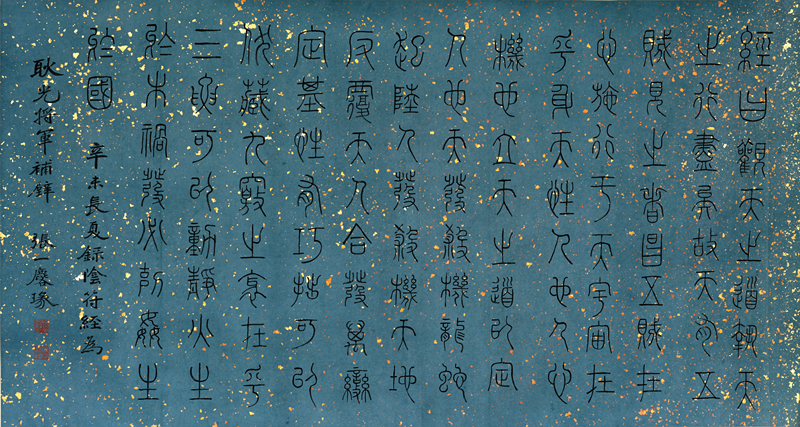 經曰觀天之道執天
之行盡矣故天有五
賊見之者昌五賊在
心施行于天宇宙在
乎身天性人也人心
機也立天之道以定
人也天發殺機龍蛇
起陸人發殺機天地
反覆天人合發萬變
定基性有巧拙可以
伏藏九竅之衺在乎
三要可以動靜火生
於木禍發必剋姦生
於國
辛未長夏錄陰符經為
耿光將軍補 張一麐